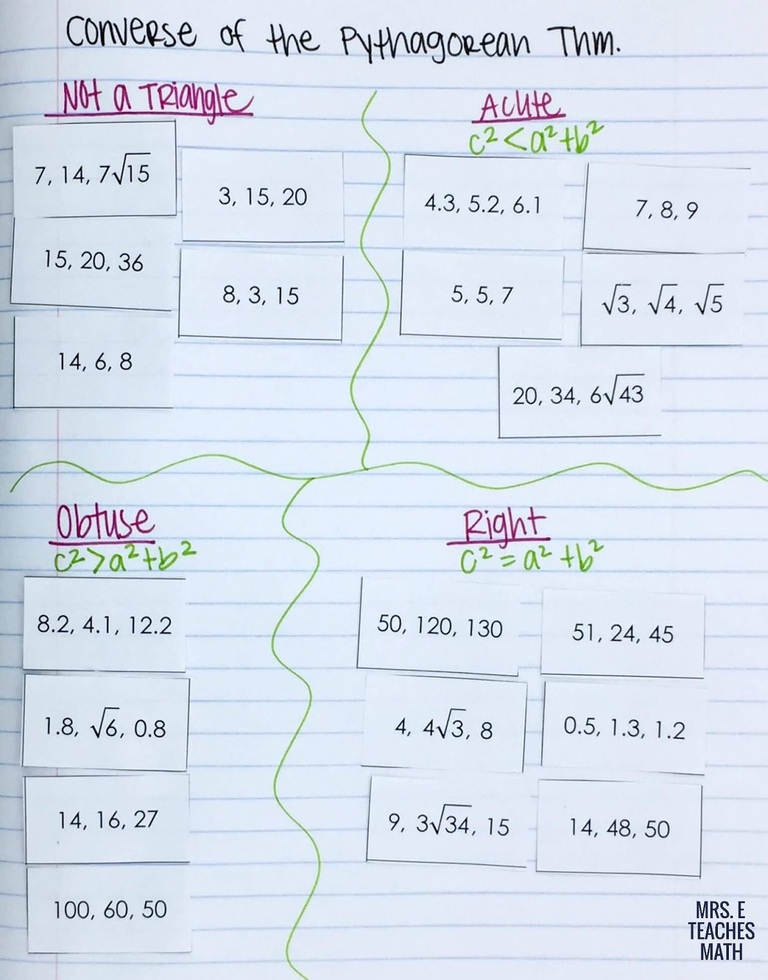 Converse of the Pythagorean Thm.
Not a Triangle
7, 14, 7√15
3, 15, 20
15, 20, 36
8, 3, 15
14, 6, 8
Acute
c² < a² + b²
4.3, 5.2, 6.1
7, 8, 9
5, 5, 7
√3, √4, √5
20, 34, 6√43
Obtuse
c² > a² + b²
8.2, 4.1, 12.2
1.8, √6, 0.8
14, 16, 27
100, 60, 50
Right
c² = a² + b²
50, 120, 130
51, 24, 45
4, 4√3, 8
0.5, 1.3, 1.2
9, 3√34, 15
14, 48, 50
MRS. E
TEACHES
MATH